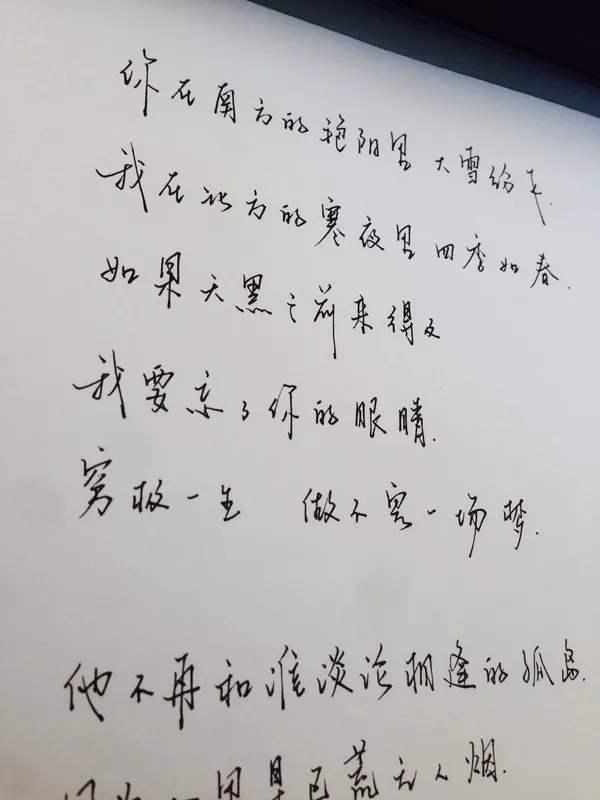 你在南方的艳阳里大雪纷飞.
我在北方的寒夜里四季如春.
如果天黑之前来得及
我要忘了你的眼睛.
穷极一生 做不完一场梦.
他不再和谁谈论相逢的孤岛.
因为里早已荒无人烟.